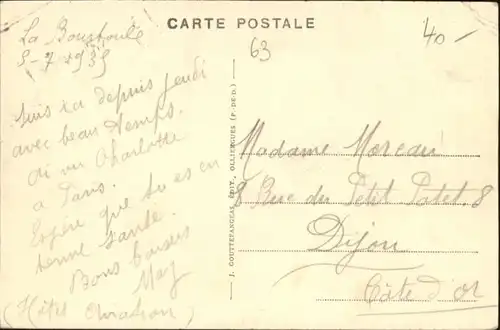 CARTE POSTALE
63
40 -
La Bourboule
5-7 1935
Suis ici depuis jeudi
avec beau temps.
Ai vu Charlotte
a Paris.
Espère que tu es en
bonne santé.
Bons baisers
May
(Hôtel
J. GOUTTEFANGEAS, ÉDIT., OLLIERGUES (P.-DE-D.)
Madame Moreau
8 Rue du Petit Potet. 8
Dijon
Côte d'Or